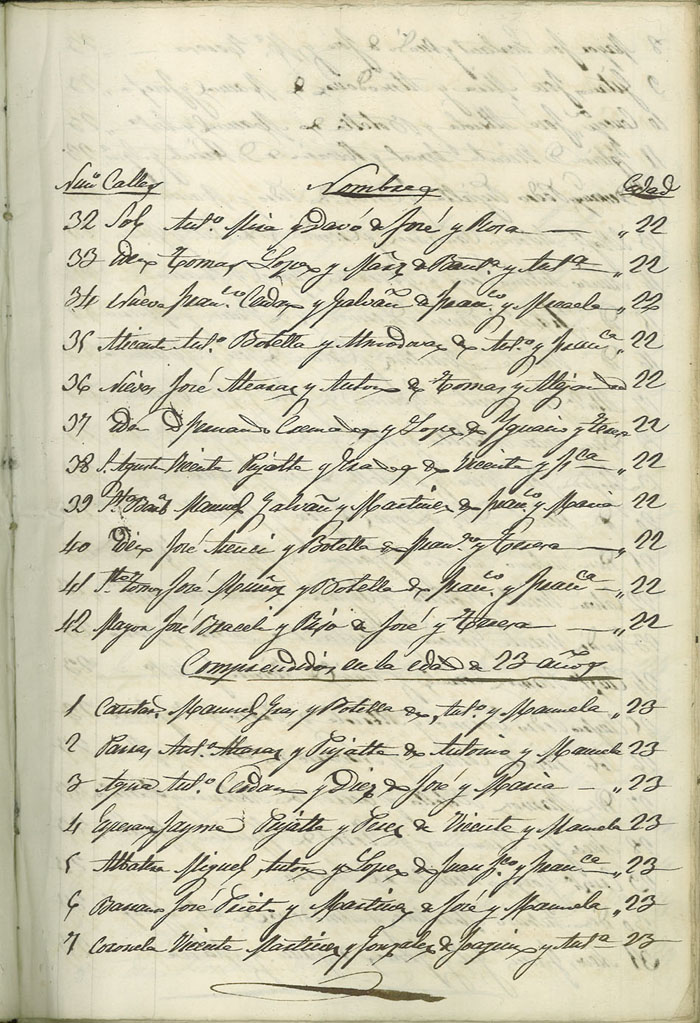 Num.o Calles Nombres Edad
32 Sol Ant.o Mira y Davó de José y Rosa — „ 22
33 Tomas Lopez y de Baut.a y Ant.a „ 22
34 Nueva Fran.co Cerdan y Galvañ de Fran.co y Micaela „ 22
35 Alicante Ant.o Botella y Almodovar de Ant.o y Fran.ca „ 22
36 Nieves José Alcaraz y Anton de Tomas y Alejandra 22
37 D. Fernando y Lopez de Ygnacio y Teresa 22
38 S. Agustin Vicente Pujalte y de Vicente y F.ca „ 22
39 Manuel Galvañ y Martinez de Fran.co y Maria 22
40 José Asenci y Botella de Fran.co y Teresa — „ 22
41 José Muñoz y Botella de Fran.co y Fran.ca — „ 22
42 Mayor José Braceli y de José y Teresa — „ 22
Comprendidos en la edad de 23 años
1 Manuel Gras y Botella de Ant.o y Manuela „ 23
2 Parras Ant.o Alcaraz y Pujalte de Antonio y Manuela 23
3 Agua Ant.o Cerdan y Diez de José y Maria — „ 23
4 Jayme Pujalte y Perez de Vicente y Manuela 23
5 Miguel Anton y Lopez de Juan F.co y Fran.ca „ 23
6 José Prieto y Martinez de José y Manuela „ 23
7 Coronela Vicente Martinez y Gonzalez de Joaquin y Ant.a 23